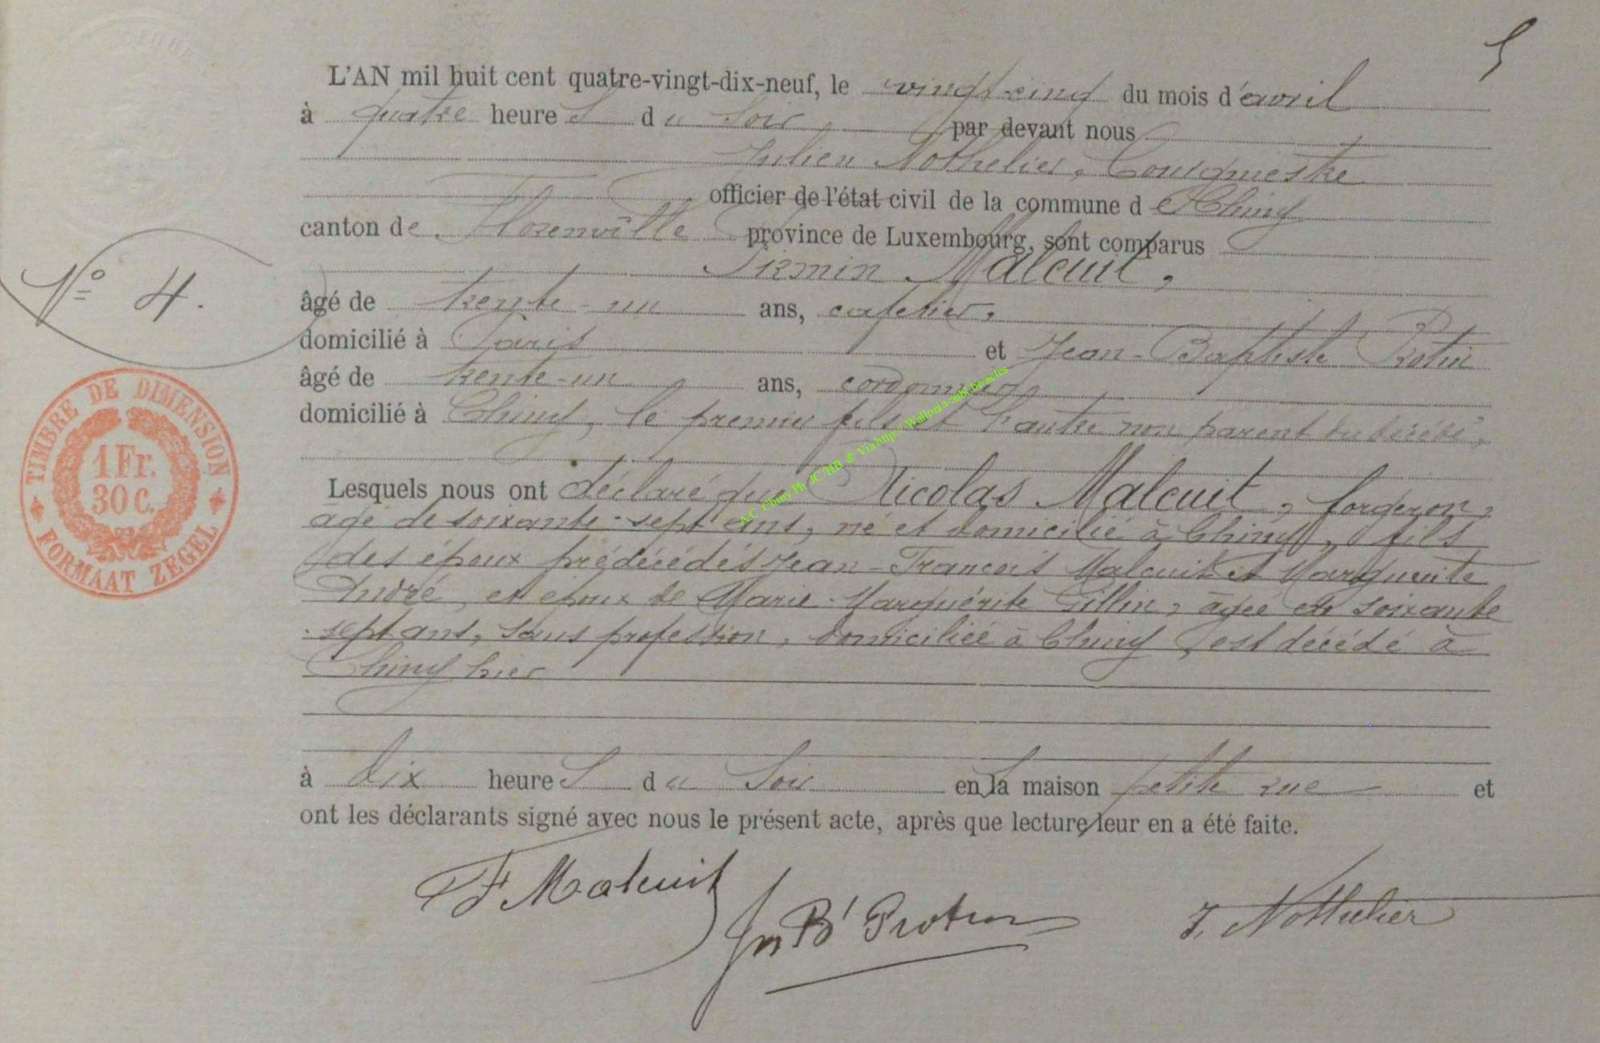 5
L'AN mil huit cent quatre-vingt-dix-neuf, le vingt cinq du mois d'avril
à quatre heures du soir par devant nous
Julien Nothelier, Bourgmestre
officier de l'état civil de la commune de Chiny
canton de Florenville province de Luxembourg, sont comparus
Firmin Malcuit,
âgé de trente-un ans, cafetier,
domicilié à Paris et Jean-Baptiste Protin
âgé de trente-un ans, cordonnier,
domicilié à Chiny, le premier fils et l'autre non parent du décédé,
Lesquels nous ont déclaré que Nicolas Malcuit, forgeron,
agé de soixante-sept ans, né et domicilié à Chiny, fils
des époux prédécédés Jean-François Malcuit et Marguerite
André, et époux de Marie-Marguérite Gillin, âgée de soixante
sept ans, sans profession, domiciliée à Chiny, est décédé à
Chiny hier
à dix heures du soir en sa maison petite rue et
ont les déclarants signé avec nous le présent acte, après que lecture leur en a été faite.
F Malcuit
Jn Bt Protin
J. Nothelier
N° 4.
TIMBRE DE DIMENSION
1 Fr.
30 C.
FORMAAT ZEGEL